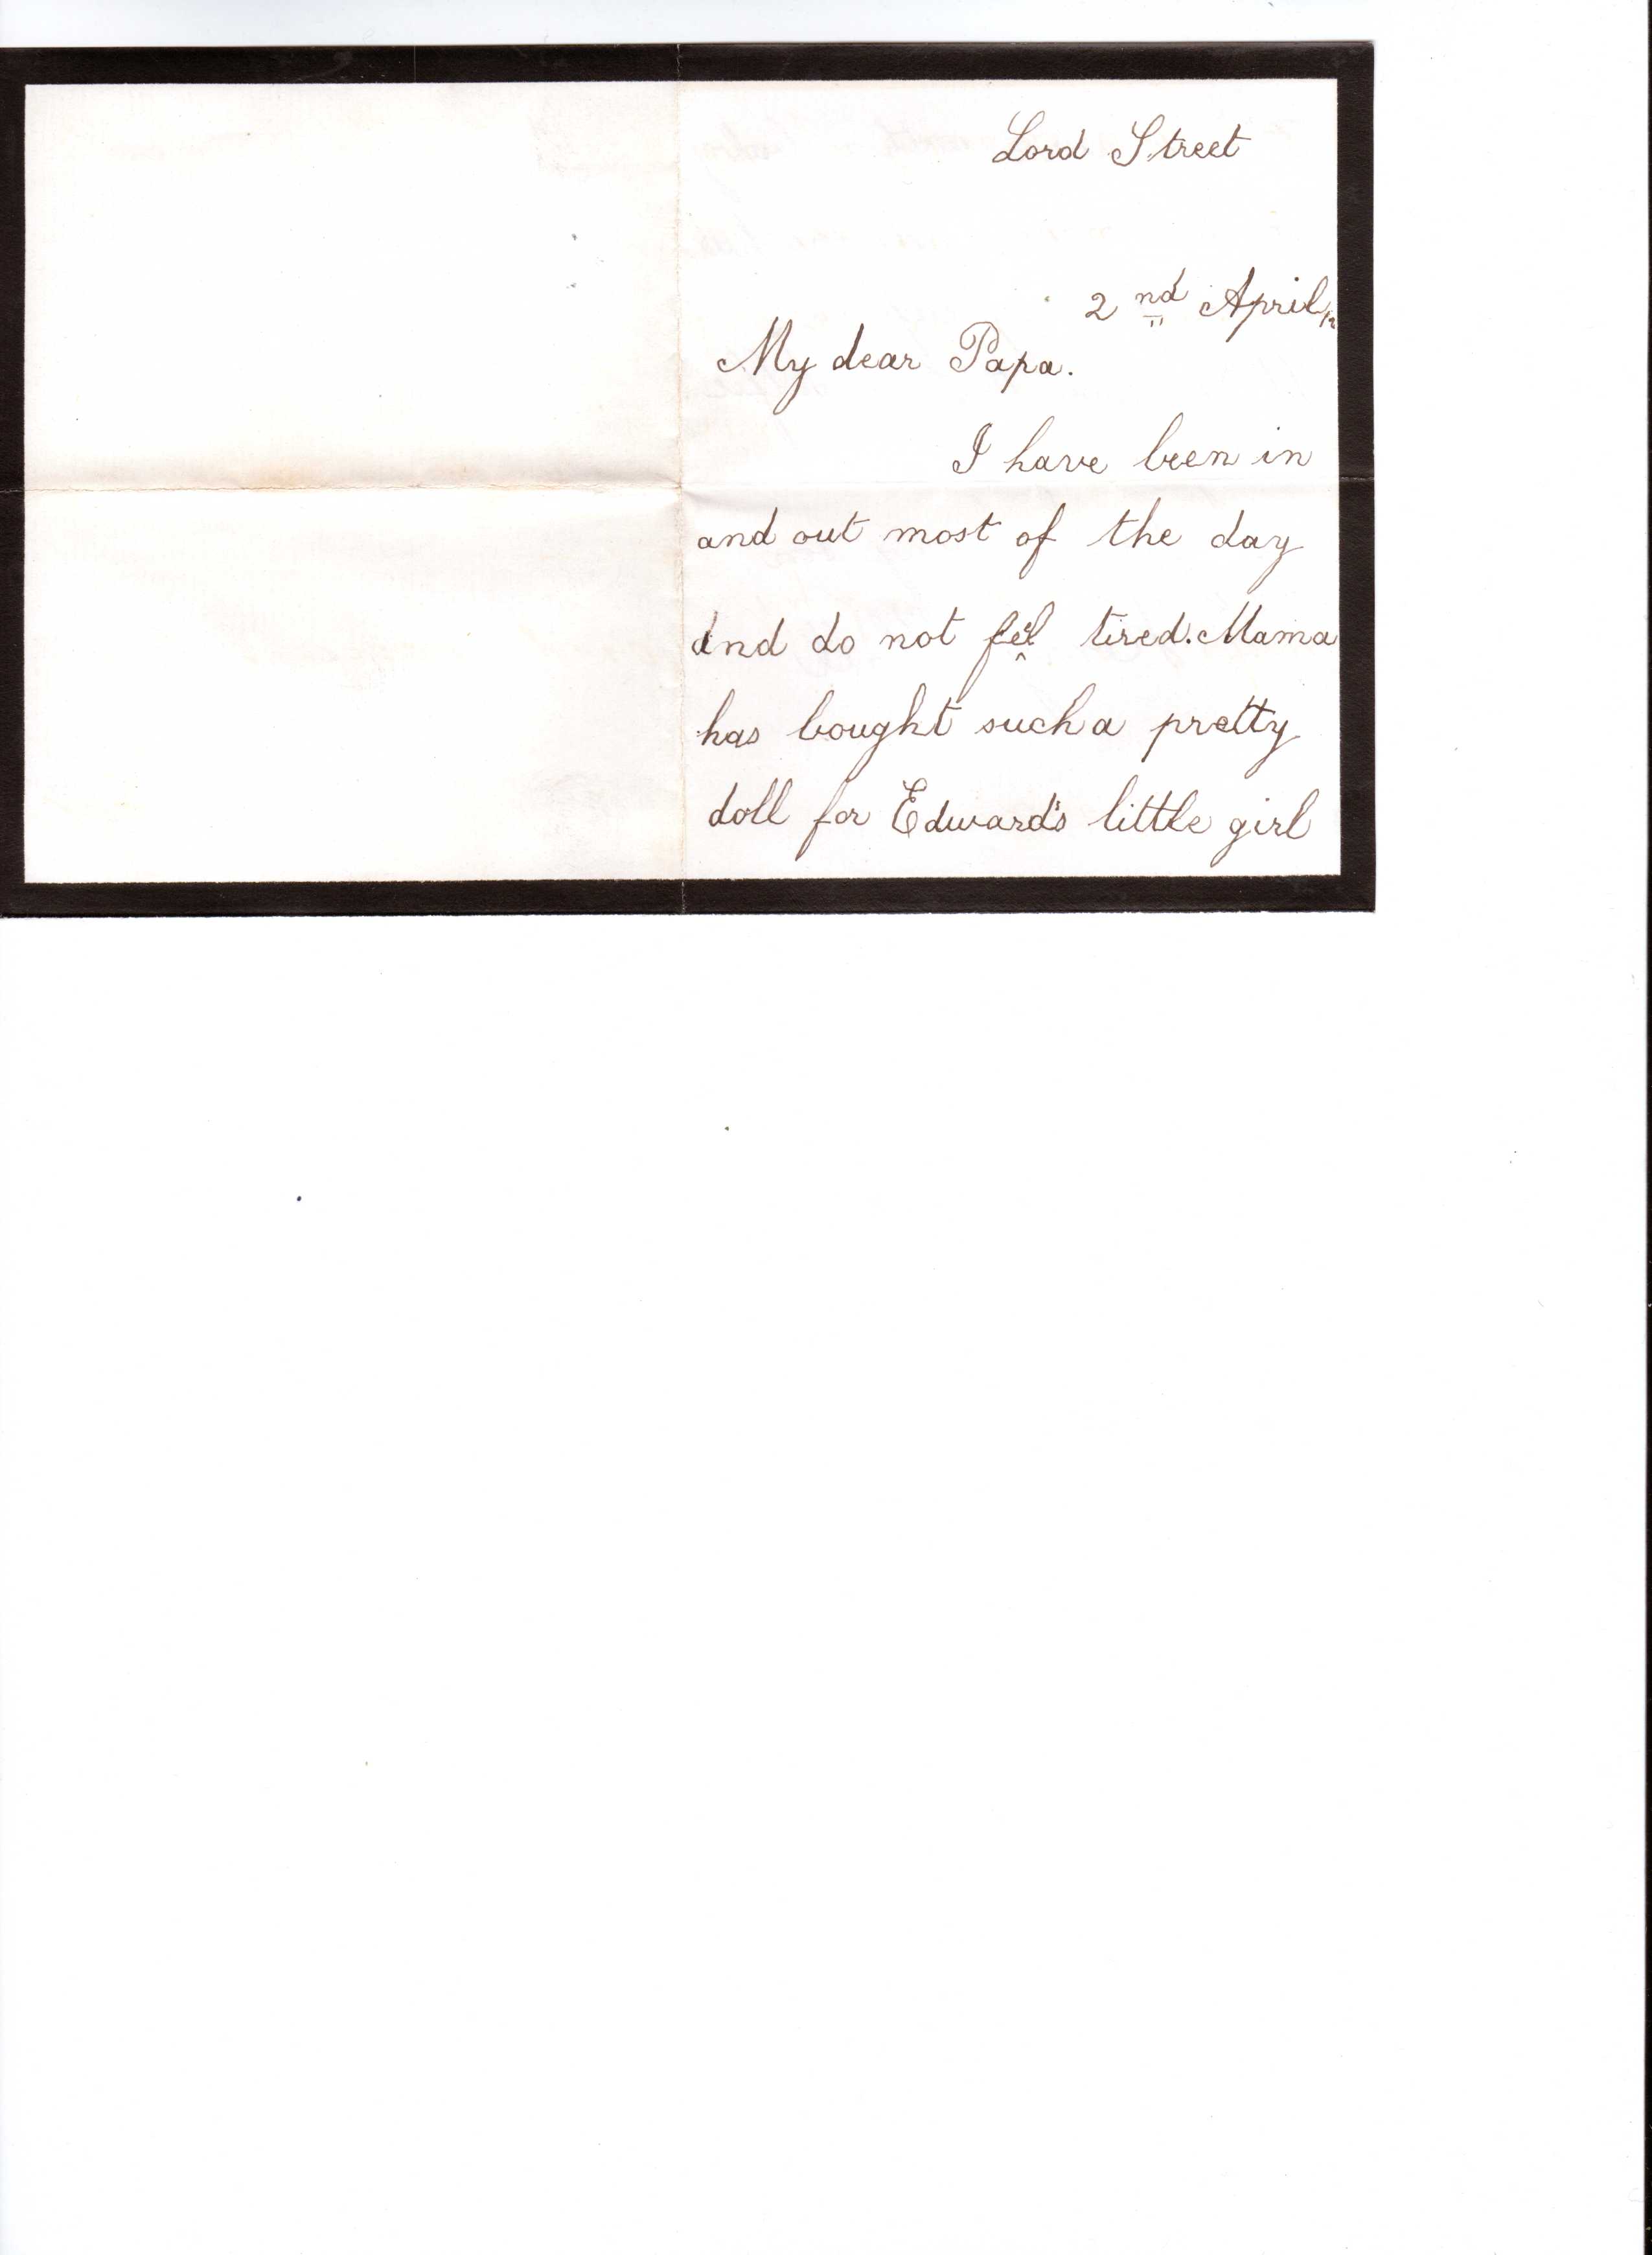 Lord Street
2nd April
My dear Papa.
I have been in
and out most of the day
and do not feel tired. Mama
has bought such a pretty
doll for Edward's little girl